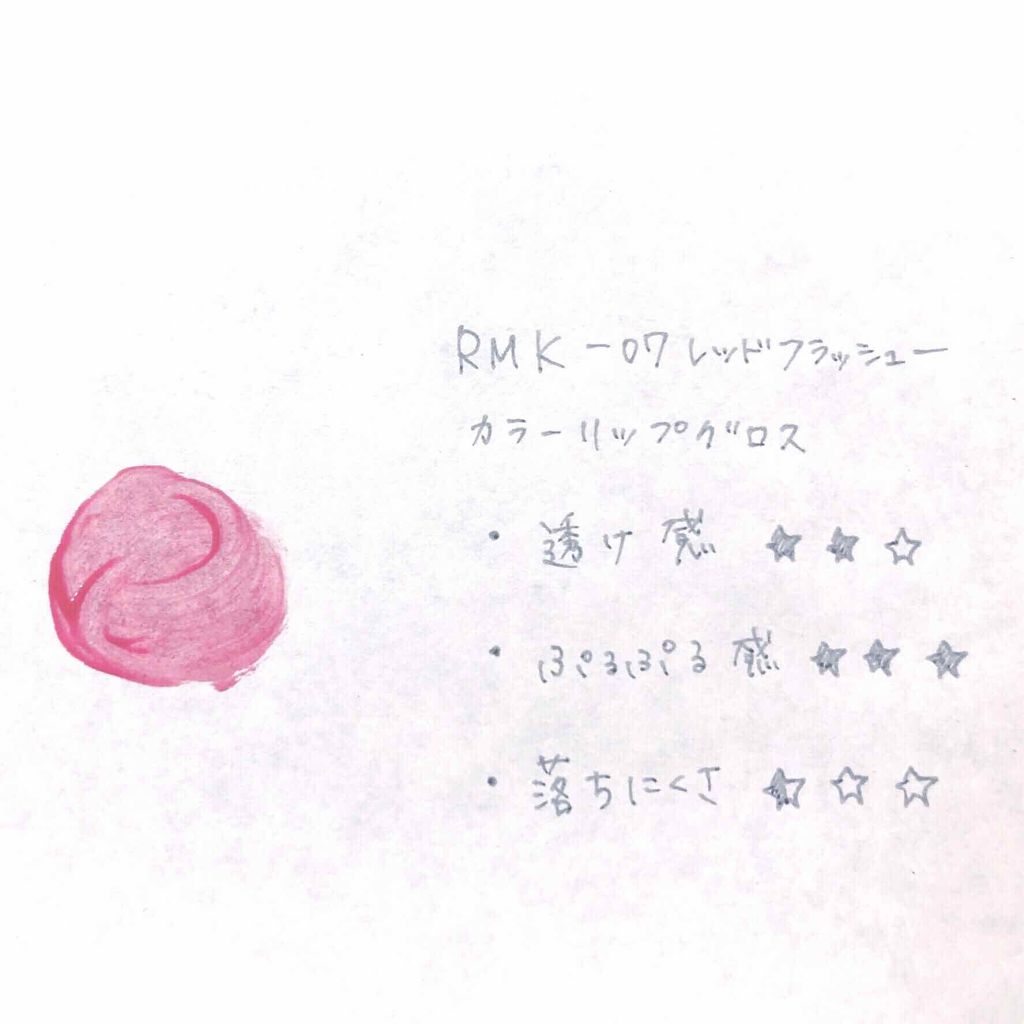 RMK-07レッドフラッシュー
カラーリップグロス
・透け感 ★★☆
・ぷるぷる感 ★★★
・落ちにくさ ★☆☆